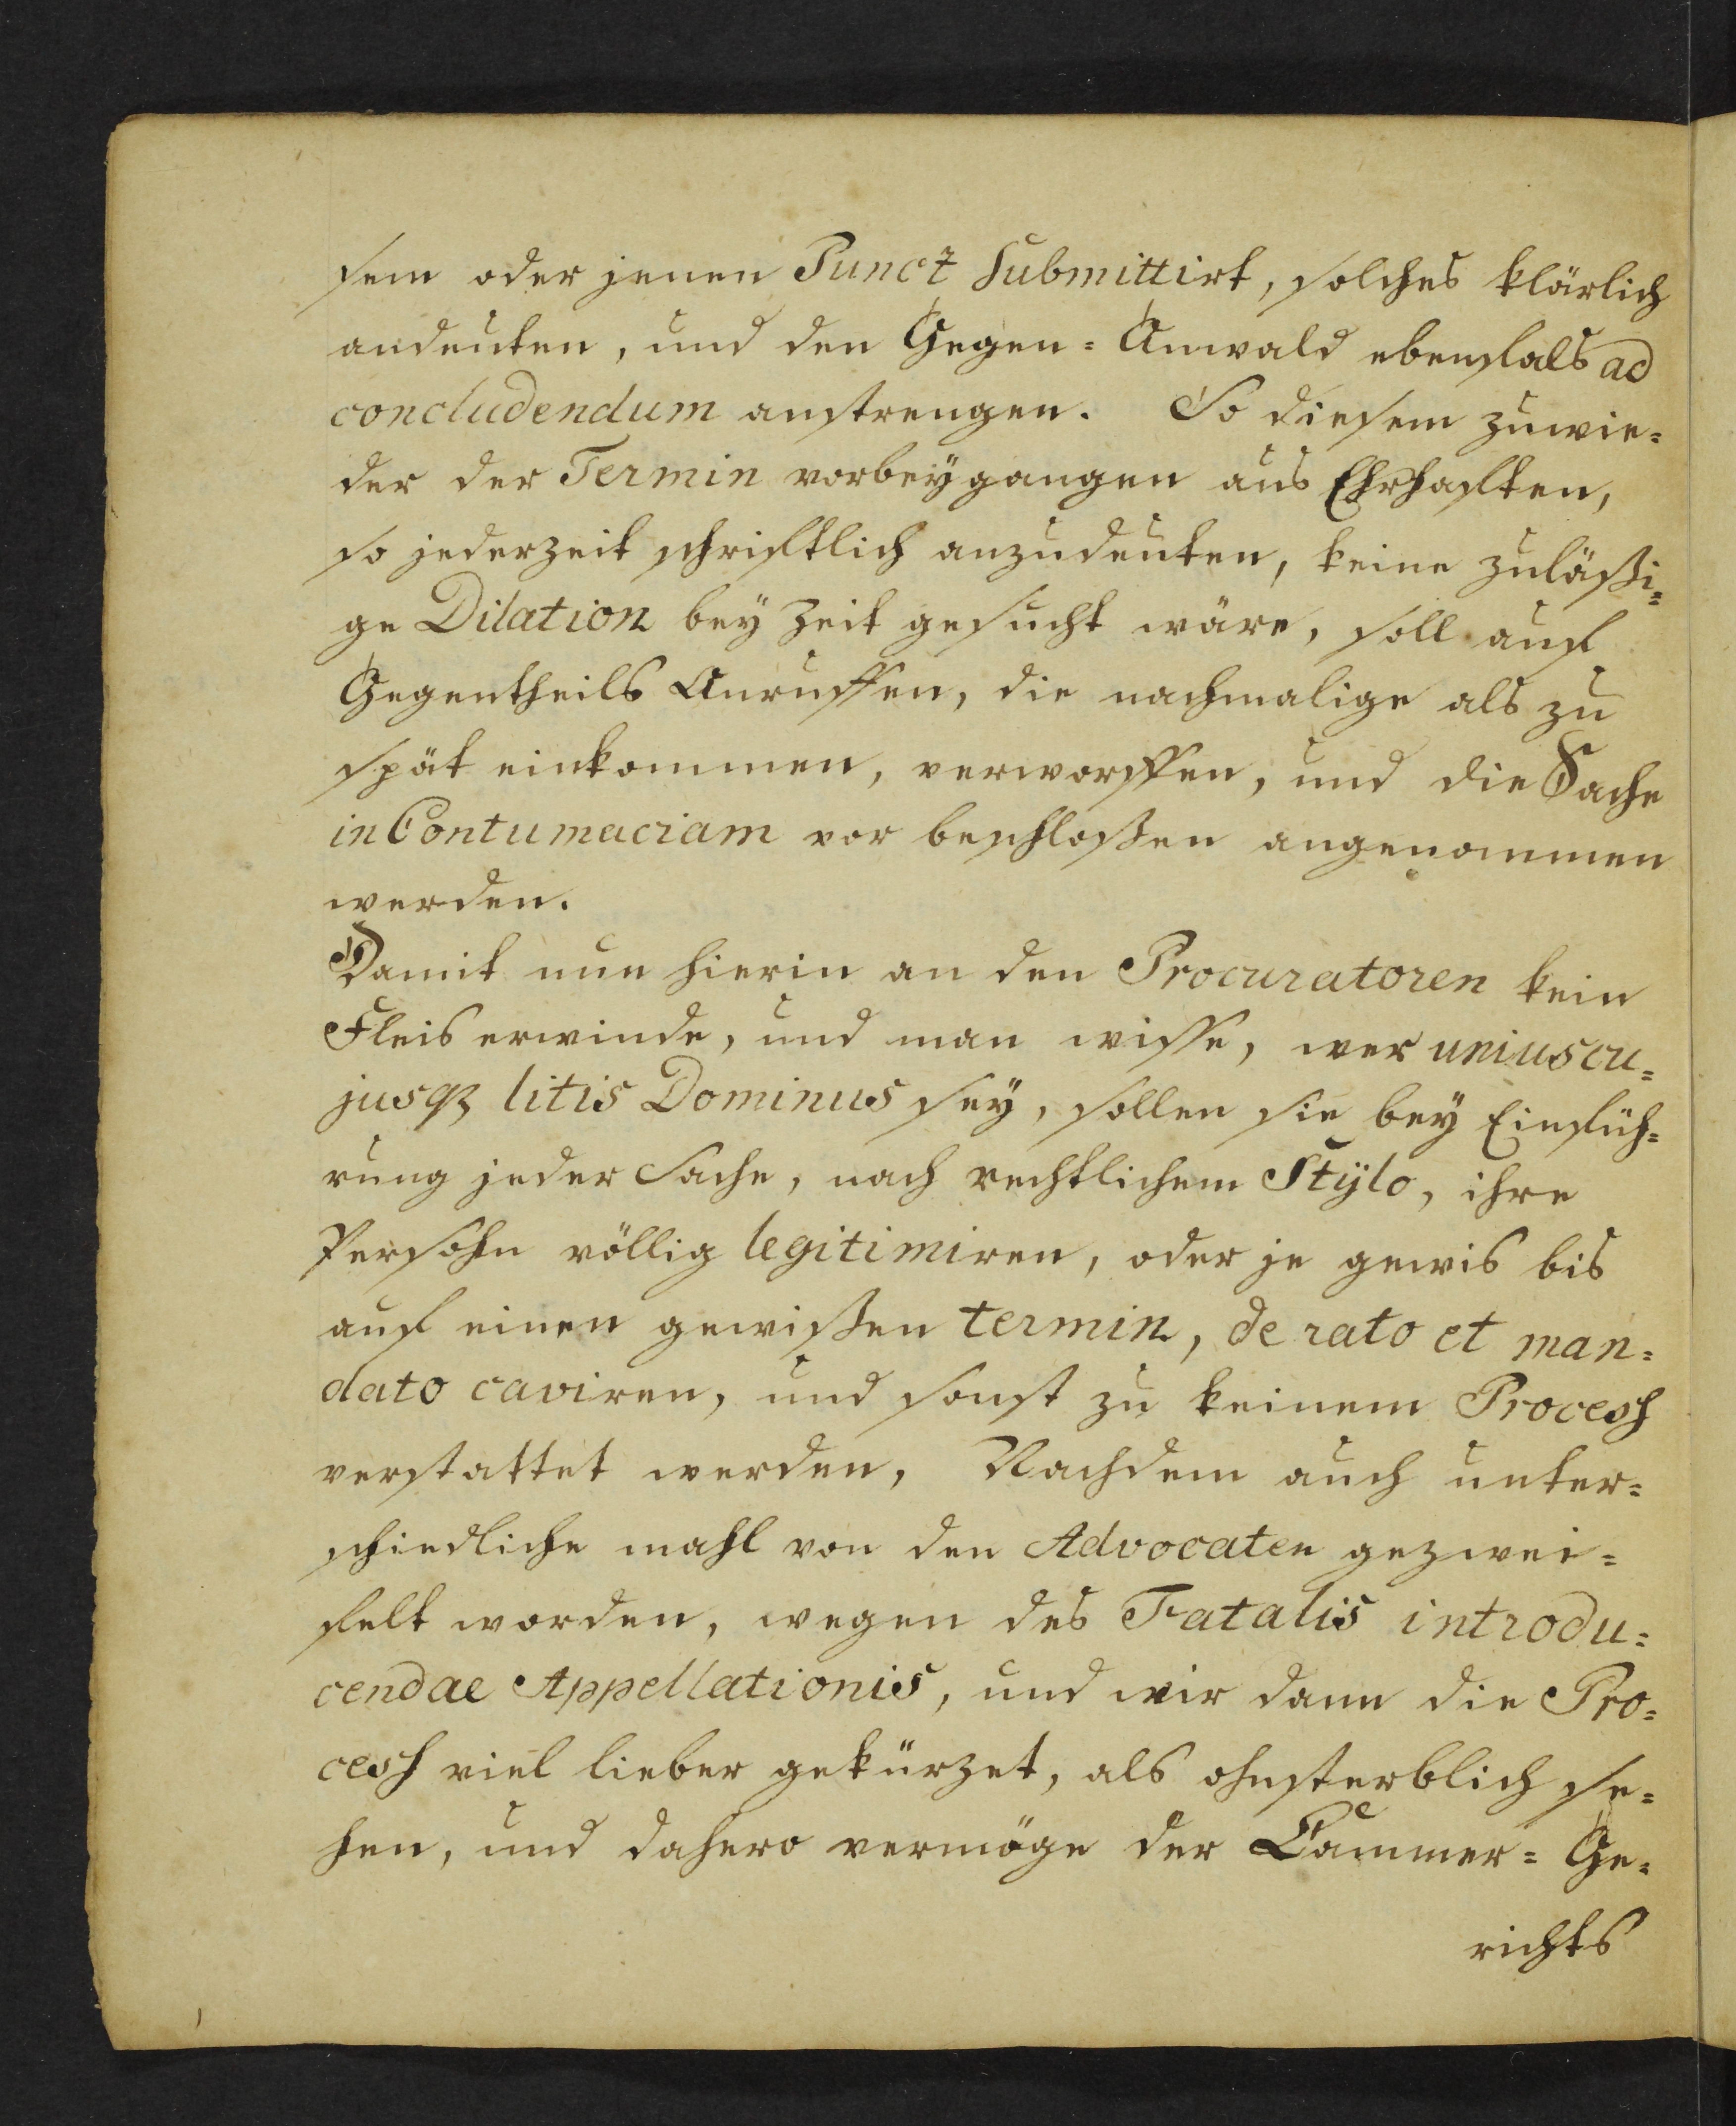 sem oder jenen Punct submittirt, solches klärlich
andeuten, und den Gegen= Anwald ebenfals ad
concludendum anstrengen. So diesem zuwie=
der der Termin vorbeÿgangen aus Ehrhafften,
so jederzeit schrifftlich anzudeuten, keine zuläßi=
ge Dilation beÿ Zeit gesucht wäre, soll auf
Gegentheils Anruffen, die nachmalige als zu
spät einkommen, verworffen, und die Sache
in Contumaciam vor beschloßen angenommen
werden.
Damit nun hierin an den Procuratoren kein
Fleis erwinde, und man wisse, wer uniuscu=
jusqz litis Dominus seÿ, sollen sie beÿ Einfüh=
rung jeder Sache, nach rechtlichem Stÿlo, ihre
Persohn völlig legitimiren, oder je gewis bis
auf einen gewißen termin, de rato et man=
dato caviren, und sonst zu keinem Process
verstattet werden, Nachdem auch unter=
schiedliche mahl von den Advocaten gezwei=
felt worden, wegen des Fatalis introdu=
cendae Appellationis, und wir dann die Pro=
cess viel lieber gekürzet, als ohnsterblich se=
hen, und dahero vermöge der Cammer= Ge=
richts